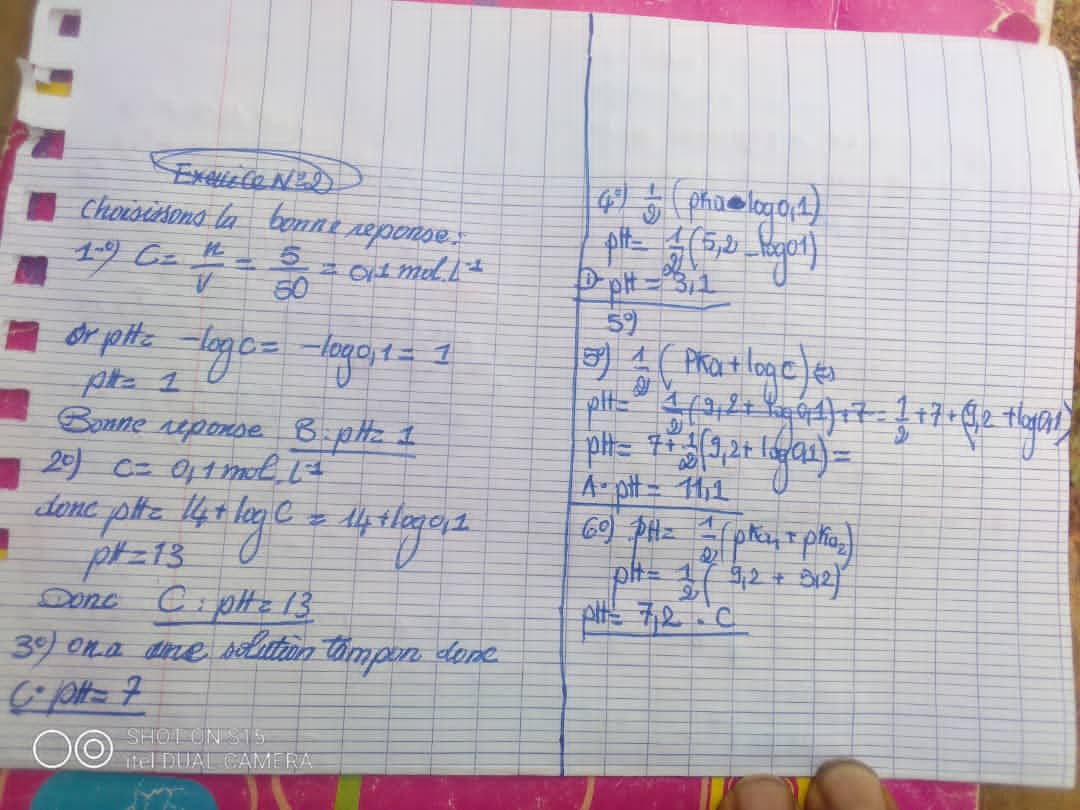 Exercice N°2
Choisissons la bonne reponse:
1-°) C = n/V = 5/50 = 0,1 mol.L⁻¹
Or pH = -log C = -log 0,1 = 1
pH = 1
Bonne reponse B: pH = 1
2°) C = 0,1 mol.L⁻¹
donc pH = 14 + log C = 14 + log 0,1
pH = 13
Donc C : pH = 13
3°) On a une solution tampon donc
C. pH = 7
4°) 1/2 (pKa - log 0,1)
pH = 1/2 (5,2 - log 01)
D pH = 3,1
5°)
5°) 1/2 (PKa + log C) ⇔
pH = 1/2 (9,2 + log 0,1) + 7 = 1/2 + 7 + (9,2 + log 0,1)
pH = 7 + 1/2 (9,2 + log 0,1) =
A. pH = 11,1
6°) pH = 1/2 (pKa₁ + pKa₂)
pH = 1/2 (9,2 + 5,2)
pH = 7,2 . C
SHOT ON S15
itel DUAL CAMERA